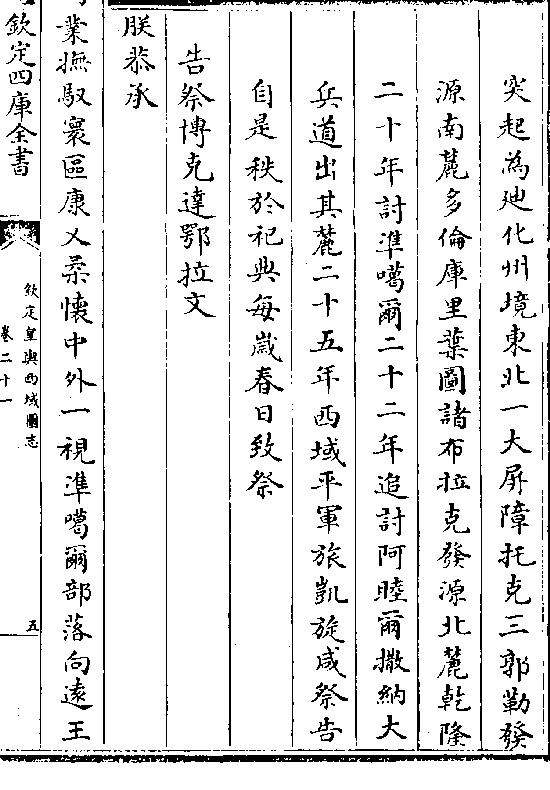 突起為廸化州境東北一大屏障托克三郭勒發
源南麓多倫庫里葉圖諸布拉克發源北麓乾隆
二十年討準噶爾二十二年追討阿睦爾撒納大
兵道出其麓二十五年西域平軍旅凱旋咸祭告
自是秩於祀典每歲春日致祭
告祭博克達鄂拉文
朕恭承
業撫馭寰區康乂柔懷中外一視準噶爾部落向遠王
欽定四庫全書
欽定皇輿西域圖志
卷二十一
五